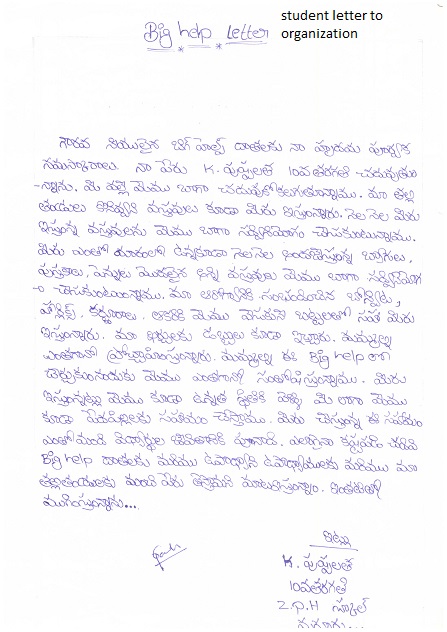 Big help Letter
student letter to
organization
గౌరవ నీయులైన బిగ్ హెల్ప్ దాతలకు నా హృదయ పూర్వక
నమస్కారాలు. నా పేరు K. పుష్పలత 10వతరగతి చదువుతు
-న్నాను. మీ వల్లె మేము బాగా చదువుకోగలుగుతున్నాము. మా తల్లి
తండ్రులు ఇవ్వని వస్తువులు కూడా మీరు ఇస్తున్నారు. నెల నెల మీరు
ఇస్తున్న వస్తువులను మేము బాగా సద్వినియోగం చేసుకుంటున్నాము.
మీరు ఎంతో దూరంలో ఉన్నకూడా నెల నెల
పుస్తకాలు, పెన్నులు మొదలైన అన్ని వస్తువులు మేము బాగా సద్వినియోగ
-ం చేసుకుంటున్నాము. మా ఆరోగ్యానికి సంబంధించిన
మీరు
ఇస్తున్నారు. మా ఇళ్లులకు డబ్బులు కూడా ఇచ్చారు. మమ్మల్ని
ఎంతగానో ప్రోత్సాహిస్తున్నారు. మమ్మల్ని ఈ Big help లో
చేర్చుకున్నందుకు మేము ఎంతగానో సంతోషిస్తున్నాము. మీరు
ఇస్తున్నట్లు మేము కూడా ఉన్నత స్థితికి వెళ్ళి మీ లాగా మేము
కూడా పేదపిల్లలకు సహాయం చేస్తాము. మీరు చేస్తున్న ఈ సహాయం
ఎంతోమంది విద్యార్థుల కష్టపడి చదివి
Big help దాతలకు మరియు ఉపాధ్యాయులకు మరియు మా
తల్లితండ్రులకు మంచి పేరు తెస్తామని మాటఇస్తున్నాం. ఇంతటితో
ముగిస్తున్నాను...
ఇట్లు
K. పుష్పలత
10వతరగతి
Z.P.H స్కూల్